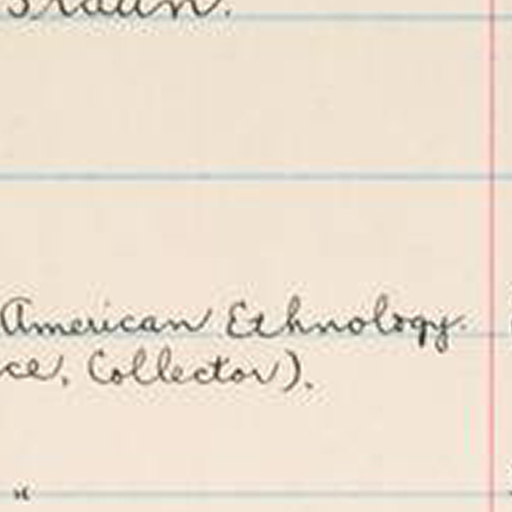 Braun.
American Ethnology.
ce, Collector).
"